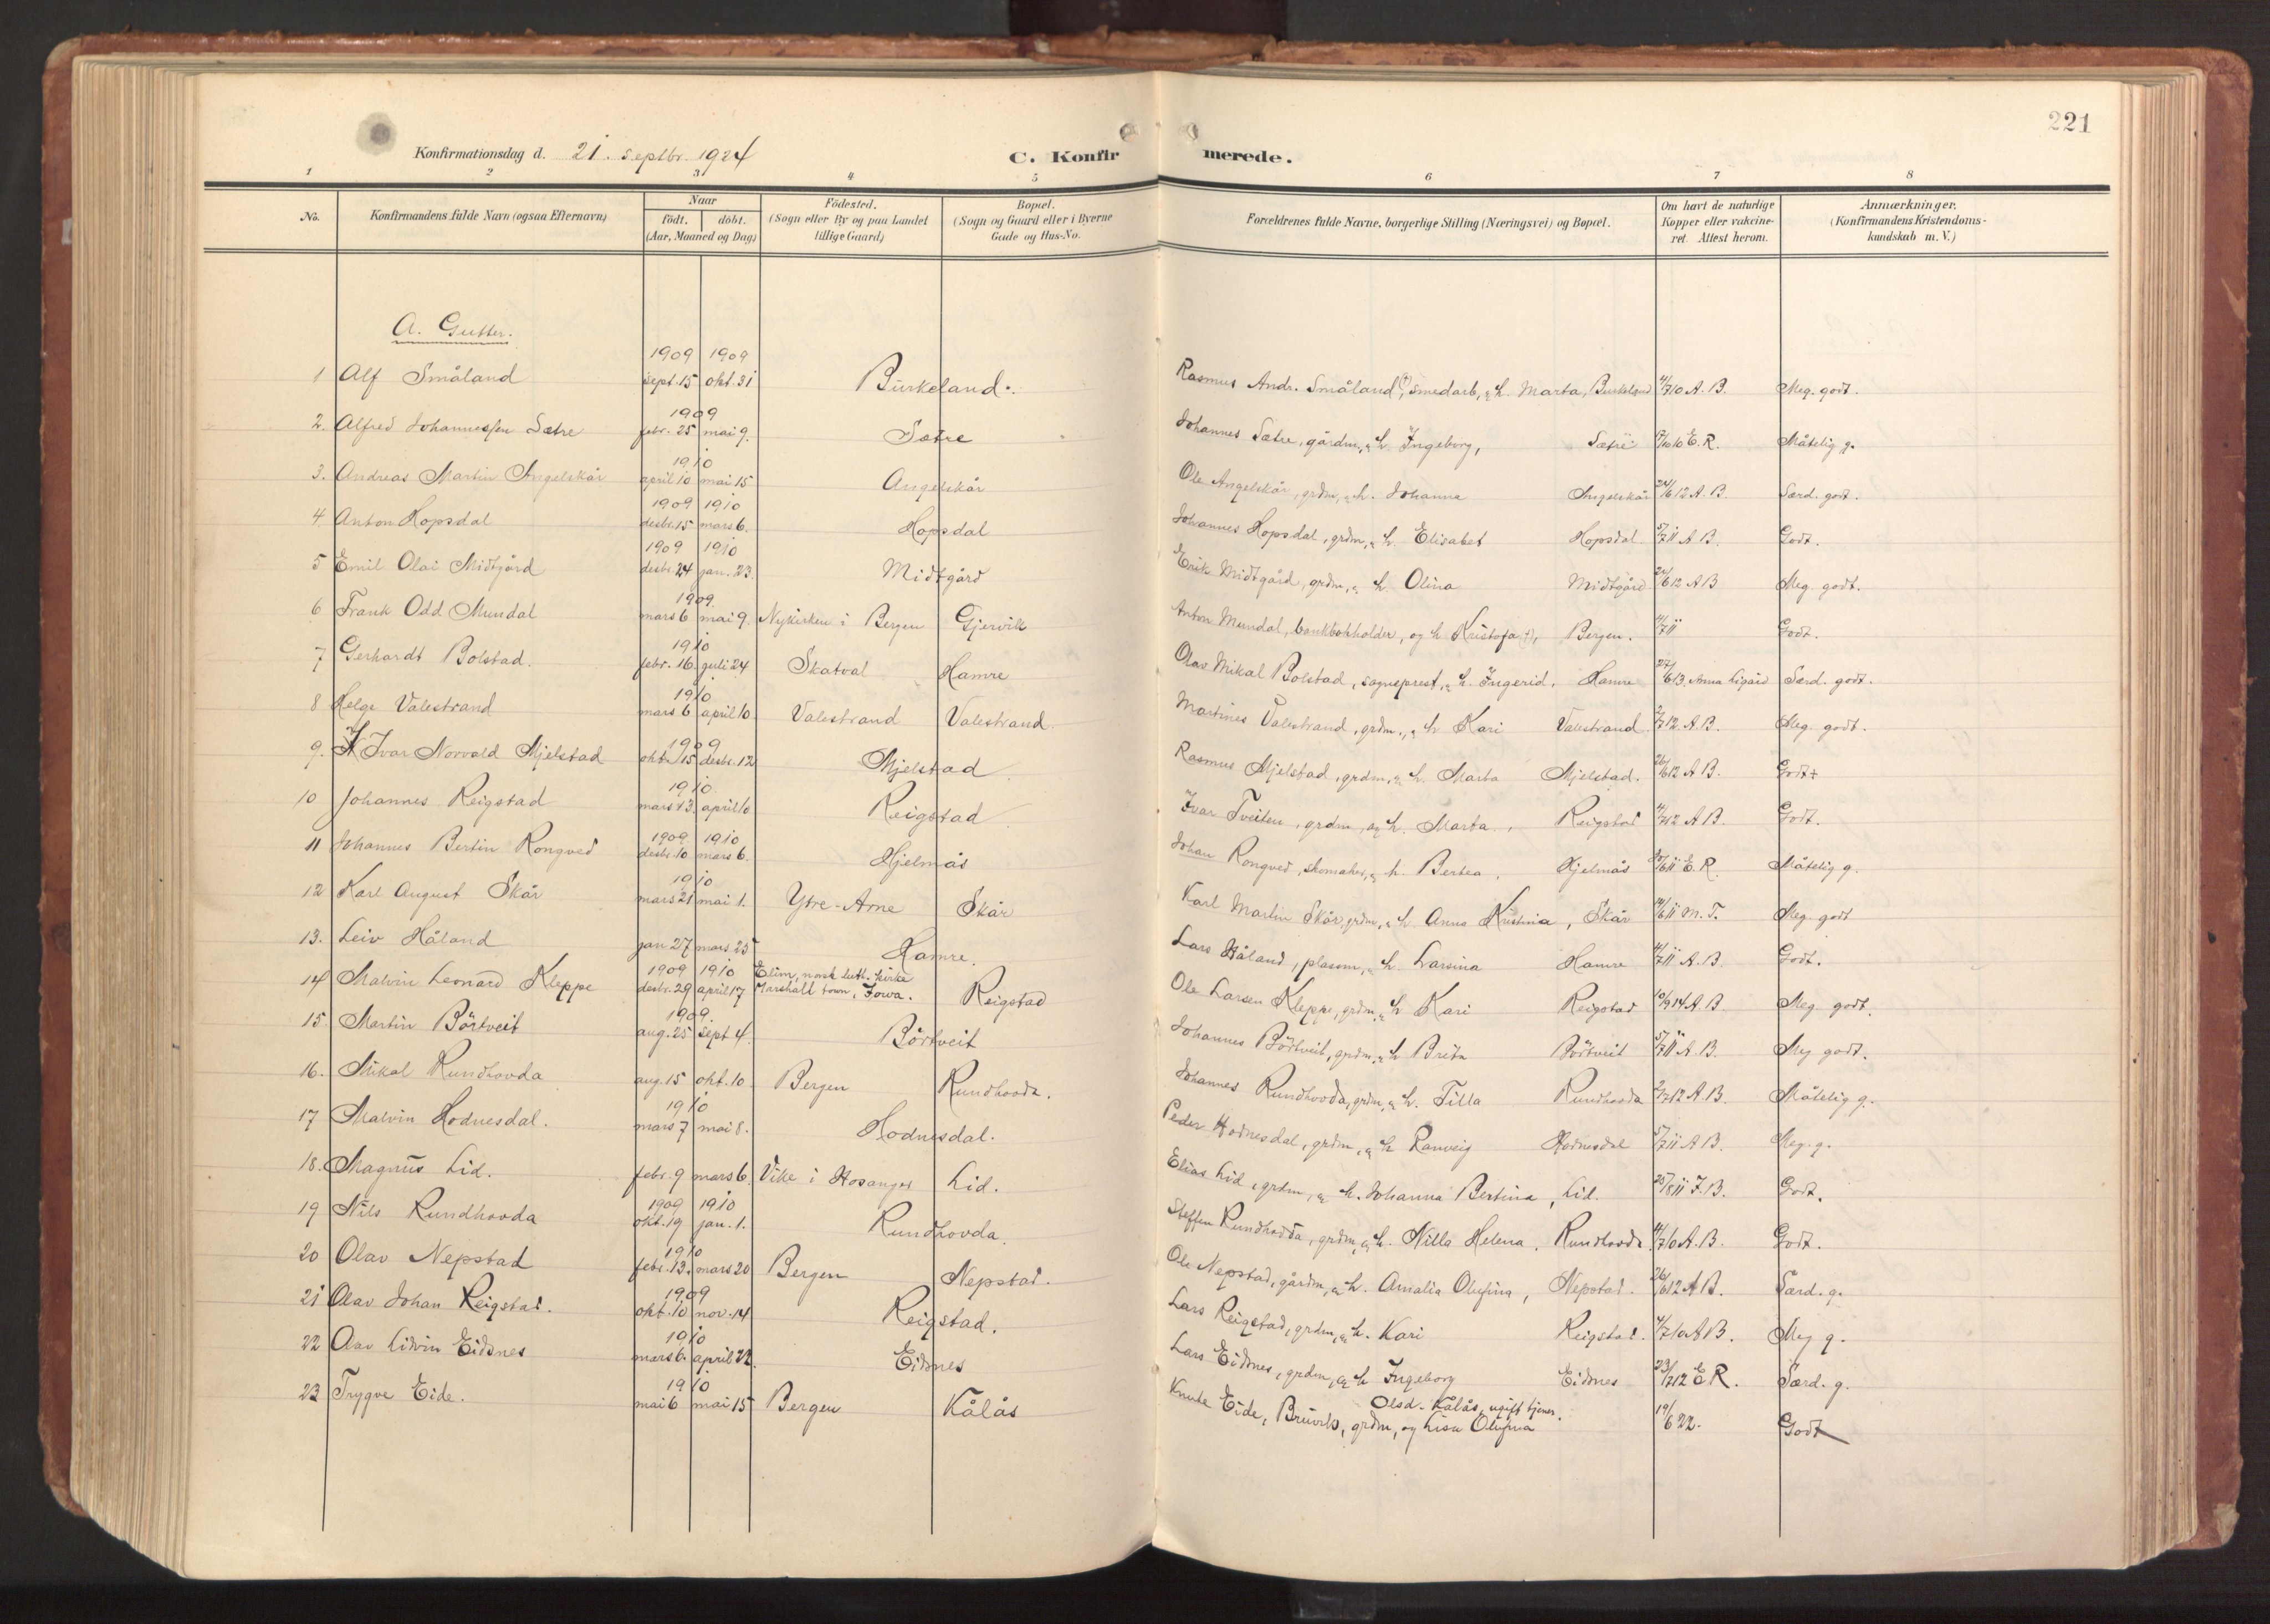 221
Konfirmationsdag d. 21. septbr. 1924 C. Konfirmerede.
1 2 3 4 5 6 7 8
No. Konfirmandens fulde Navn (ogsaa Efternavn) Naar födt. döbt. (Aar, Maaned og Dag) Födested. (Sogn eller By og paa Landet tillige Gaard) Bopæl. (Sogn og Gaard eller i Byerne Gade og Hus-No. Forældrenes fulde Navne, borgerlige Stilling (Næringsvei) og Bopæl. Om havt de naturlige Kopper eller vakcineret. Attest herom. Anmærkninger. (Konfirmandens Kristendomskundskab m. V.)
A. Gutter.
1909 1909
1 Alf Småland sept. 15 okt. 31 Birkeland. Rasmus Andr. Småland, smedarb, & h. Marta, Birkeland 4/7 10 A. B. Meg. godt.
1909
2. Alfred Johannessen Sætre febr. 25 mai 9. Sætre Johannes Sætre, gårdm, & h. Ingeborg, Sætre 17/10 10 E. R. Måtelig g.
1910
3. Andreas Martin Angelskår april 10 mai 15 Angelskår Ole Angelskår, grdm, & h. Johanna Angelskår 24/6 12 A. B. Særd. godt.
1909 1910
4 Anton Hopsdal desbr. 15 mars 6. Hopsdal Johannes Hopsdal, grdm, & h. Elisabet Hopsdal 5/7 11 A B. Godt.
1909 1910
5 Emil Olai Midtgård desbr. 24 jan. 23. Midtgård Erik Midtgård, grdm, & h. Olina Midtgård 24/6 12 A B Meg. godt.
1909.
6 Frank Odd Mundal mars 6 mai 9. Nykirken i Bergen Gjervik Anton Mundal, bankbokholder, og h Kristofa (†), Bergen. 4/7 11 Godt.
1910
7 Gerhardt Bolstad. febr. 16. juli 24 Skatval Hamre Olav Mikal Bolstad, sogneprest, & h. Ingerid, Hamre 27/6 13. Anna Ligård Særd. godt.
1910
8 Helge Valestrand mars 6 april 10. Valestrand Valestrand. Martines Valestrand, grdm., & h Kari Valestrand 2/7 12 A. B. Meg. godt.
1909
9. Ivar Norvald Mjelstad okt. 15 desbr. 12 Mjelstad Rasmus Mjelstad, grdm, & h. Marta Mjelstad. 26/6 12 A B. Godt
1910
10 Johannes Reigstad mars 13. april 10 Reigstad Ivar Tveiten, grdm, og h. Marta, Reigstad 4/7 12 A B. Godt.
1909 1910
11 Johannes Bertin Rongved desbr. 10 mars 6. Hjelmås Johan Rongved, skomaker, & h. Bertea, Hjelmås 30/6 11 E. R. Måtelig g.
1910
12 Karl August Skår mars 21 mai 1. Ytre-Arne Skår Karl Martin Skår, grdm, & h. Anna Kristina, Skår 14/6 11 M. T. Meg. godt
13. Leiv Håland jan 27 mars 25 Hamre. Lars Håland, plassm, & h. Larsina Hamre 4/7 11 A. B. Godt.
1909 1910 Elim, norsk luth. kirke
14 Malvin Leonard Kleppe desbr. 29 april 17 Marshall town, Iowa. Reigstad Ole Larsen Kleppe, grdm, & h Kari Reigstad 10/9 14 A. B. Meg. godt.
1909.
15. Martin Börtveit aug. 25 sept 4. Börtveit Johannes Börtveit, grdm, & h Brita Börtveit 5/7 11 A. B. Meg godt.
16. Mikal Rundhovda aug. 15 okt. 10 Bergen Rundhovda. Johannes Rundhovda, grdm, & h. Tilla Rundhovda 2/7 12 A. B. Måtelig g.
1910
17 Malvin Hodnesdal. mars 7 mai 8. Hodnesdal. Peder Hodnesdal, grdm, & h Ranveig Hodnesdal 5/7 11 A B. Meg. g.
18. Magnus Lid. febr. 9 mars 6. Vike i Hosanger Lid. Elias Lid, grdm, & h. Johanna Bertina, Lid. 20/8 11 J. B. Godt.
1909 1910
19 Nils Rundhovda okt. 19 jan. 1. Rundhovda. Steffen Rundhovda, grdm, & h. Nilla Helena, Rundhovda. 4/7 10 A. B. Godt.
1910
20 Olav Nepstad febr. 13. mars 20 Bergen Nepstad. Ole Nepstad, gårdm, & h. Amalia Olufina, Nepstad. 26/6 12 A B. Særd. g.
1909
21 Olav Johan Reigstad. okt. 10 nov. 14 Reigstad. Lars Reigstad, grdm, & h. Kari Reigstad. 4/7 10 A B. Meg g.
1910
22 Olav Lidvin Eidsnes mars 6. april 22. Eidsnes Lars Eidsnes, grdm, & h Ingeborg Eidsnes 23/7 12 E R. Særd. g.
1910 Olsd. Kålås, ugift tjener.
23 Trygve Eide. mai 6 mai 15 Bergen Kålås Knut Eide, Bruvik, grdm, og Lisa Olufina 19/6 22. Godt